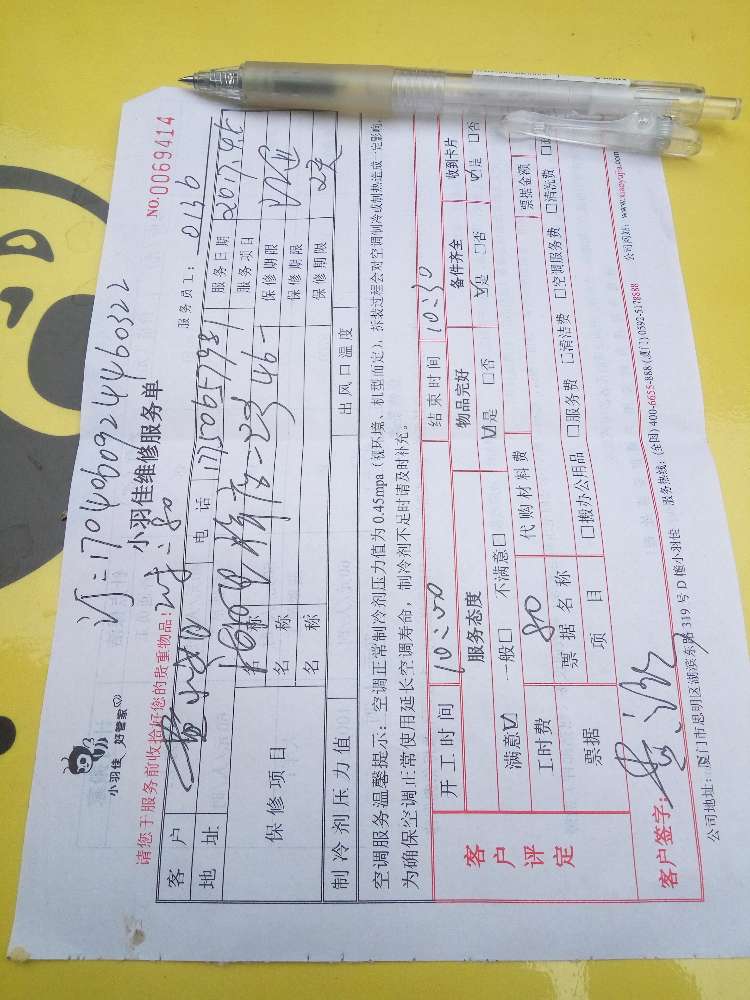 NO.0069414
小羽佳 好管家
小羽佳维修服务单
请您于服务前收拾好您的贵重物品:
服务员工: 0136
客户
电话
服务日期 2017.4.5
地址
服务项目
保修项目
名称
保修期限
名称
保修期限
名称
保修期限
制冷剂压力值
出风口温度
空调服务温馨提示:空调正常制冷剂压力值为0.45mpa(视环境、机型而定),拆装过程会对空调制冷或制热造成一定影响,
为确保空调正常使用延长空调寿命,制冷剂不足时请及时补充。
客户评定
开工时间 10:00
结束时间 10:30
服务态度
物品完好
备件齐全
收到卡片
满意☑ 一般□ 不满意□
☑是 □否
☑是 □否
☑是 □否
工时费 80
代购材料费
票据
票据名称
票据金额
项目
□搬办公用品 □服务费 □清洁费 □空调服务费 □清洗费
客户签字:
公司地址:厦门市思明区湖滨东路319号D幢小羽佳 服务热线:(全国)400-6655-888(厦门)0592-5178888 公司网站:www.xiaoyujia.com